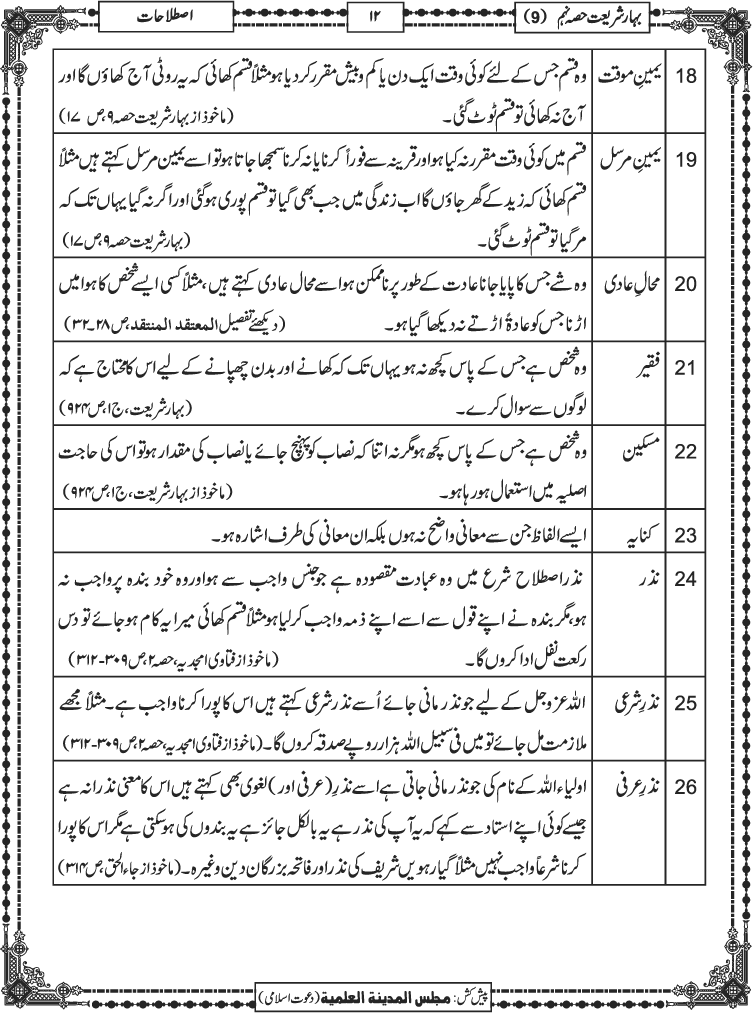 بہار شریعت حصہ نہم (9)
۱۲
اصطلاحات
18 یمینِ موقت وہ قسم جس کے لئے کوئی وقت ایک دن یا کم و بیش مقرر کر دیا ہو مثلاً قسم کھائی کہ یہ روٹی آج کھاؤں گا اور
آج نہ کھائی تو قسم ٹوٹ گئی۔ (ماخوذ از بہار شریعت حصہ ۹، ص ۱۷)
19 یمینِ مرسل قسم میں کوئی وقت مقرر نہ کیا ہو اور قرینہ سے فوراً کرنا یا نہ کرنا سمجھا جاتا ہو تو اسے یمین مرسل کہتے ہیں مثلاً
قسم کھائی کہ زید کے گھر جاؤں گا اب زندگی میں جب بھی گیا تو قسم پوری ہو گئی اور اگر نہ گیا یہاں تک کہ
مر گیا تو قسم ٹوٹ گئی۔ (بہار شریعت حصہ ۹، ص ۱۷)
20 محالِ عادی وہ شے جس کا پایا جانا عادت کے طور پر ناممکن ہو اسے محال عادی کہتے ہیں، مثلاً کسی ایسے شخص کا ہوا میں
اڑنا جس کو عادۃً اڑتے نہ دیکھا گیا ہو۔ (دیکھئے تفصیل المعتقد المنتقد، ص ۲۸۔۳۲)
21 فقیر وہ شخص ہے جس کے پاس کچھ نہ ہو یہاں تک کہ کھانے اور بدن چھپانے کے لیے اس کا محتاج ہے کہ
لوگوں سے سوال کرے۔ (بہار شریعت، ج ۱، ص ۹۲۴)
22 مسکین وہ شخص ہے جس کے پاس کچھ ہو مگر نہ اتنا کہ نصاب کو پہنچ جائے یا نصاب کی مقدار ہو تو اس کی حاجت
اصلیہ میں استعمال ہو رہا ہو۔ (ماخوذ از بہار شریعت، ج ۱، ص ۹۲۴)
23 کنایہ ایسے الفاظ جن سے معانی واضح نہ ہوں بلکہ ان معانی کی طرف اشارہ ہو۔
24 نذر نذر اصطلاح شرع میں وہ عبادت مقصودہ ہے جو جنس واجب سے ہو اور وہ خود بندہ پر واجب نہ
ہو، مگر بندہ نے اپنے قول سے اسے اپنے ذمہ واجب کر لیا ہو مثلاً قسم کھائی میرا یہ کام ہو جائے تو دس
رکعت نفل ادا کروں گا۔ (ماخوذ از فتاوی امجدیہ، حصہ ۲، ص ۳۰۹-۳۱۲)
25 نذرِ شرعی اللہ عزوجل کے لیے جو نذر مانی جائے اُسے نذر شرعی کہتے ہیں اس کا پورا کرنا واجب ہے۔ مثلاً مجھے
ملازمت مل جائے تو میں فی سبیل اللہ ہزار روپے صدقہ کروں گا۔ (ماخوذ از فتاوی امجدیہ، حصہ ۲، ص ۳۰۹-۳۱۲)
26 نذرِ عرفی اولیاء اللہ کے نام کی جو نذر مانی جاتی ہے اسے نذرِ (عرفی اور) لغوی بھی کہتے ہیں اس کا معنی نذرانہ ہے
جیسے کوئی اپنے استاد سے کہے کہ یہ آپ کی نذر ہے یہ بالکل جائز ہے یہ بندوں کی ہو سکتی ہے مگر اس کا پورا
کرنا شرعاً واجب نہیں مثلاً گیارہویں شریف کی نذر اور فاتحہ بزرگان دین وغیرہ۔ (ماخوذ از جاء الحق، ص ۳۱۴)
پیش کش: مجلس المدینۃ العلمیۃ (دعوت اسلامی)